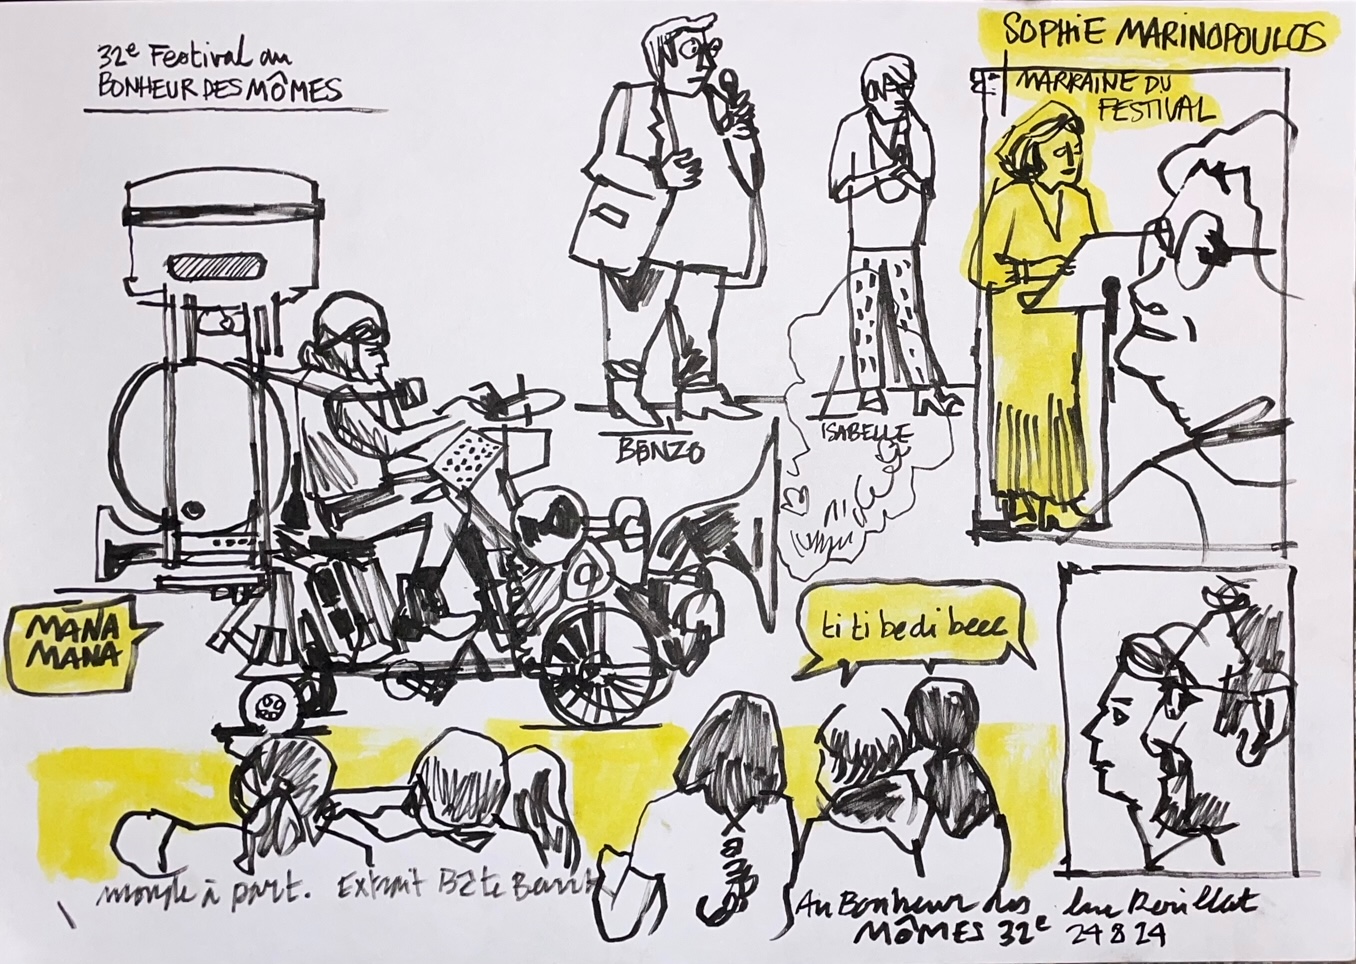 32e Festival au
BONHEUR DES MÔMES
SOPHIE MARINOPOULOS
MARRAINE DU
FESTIVAL
BENZO
ISABELLE
MANA
MANA
ti ti be di beee
monde à part. Extrait
Au Bonheur des
MÔMES 32e
24 8 24